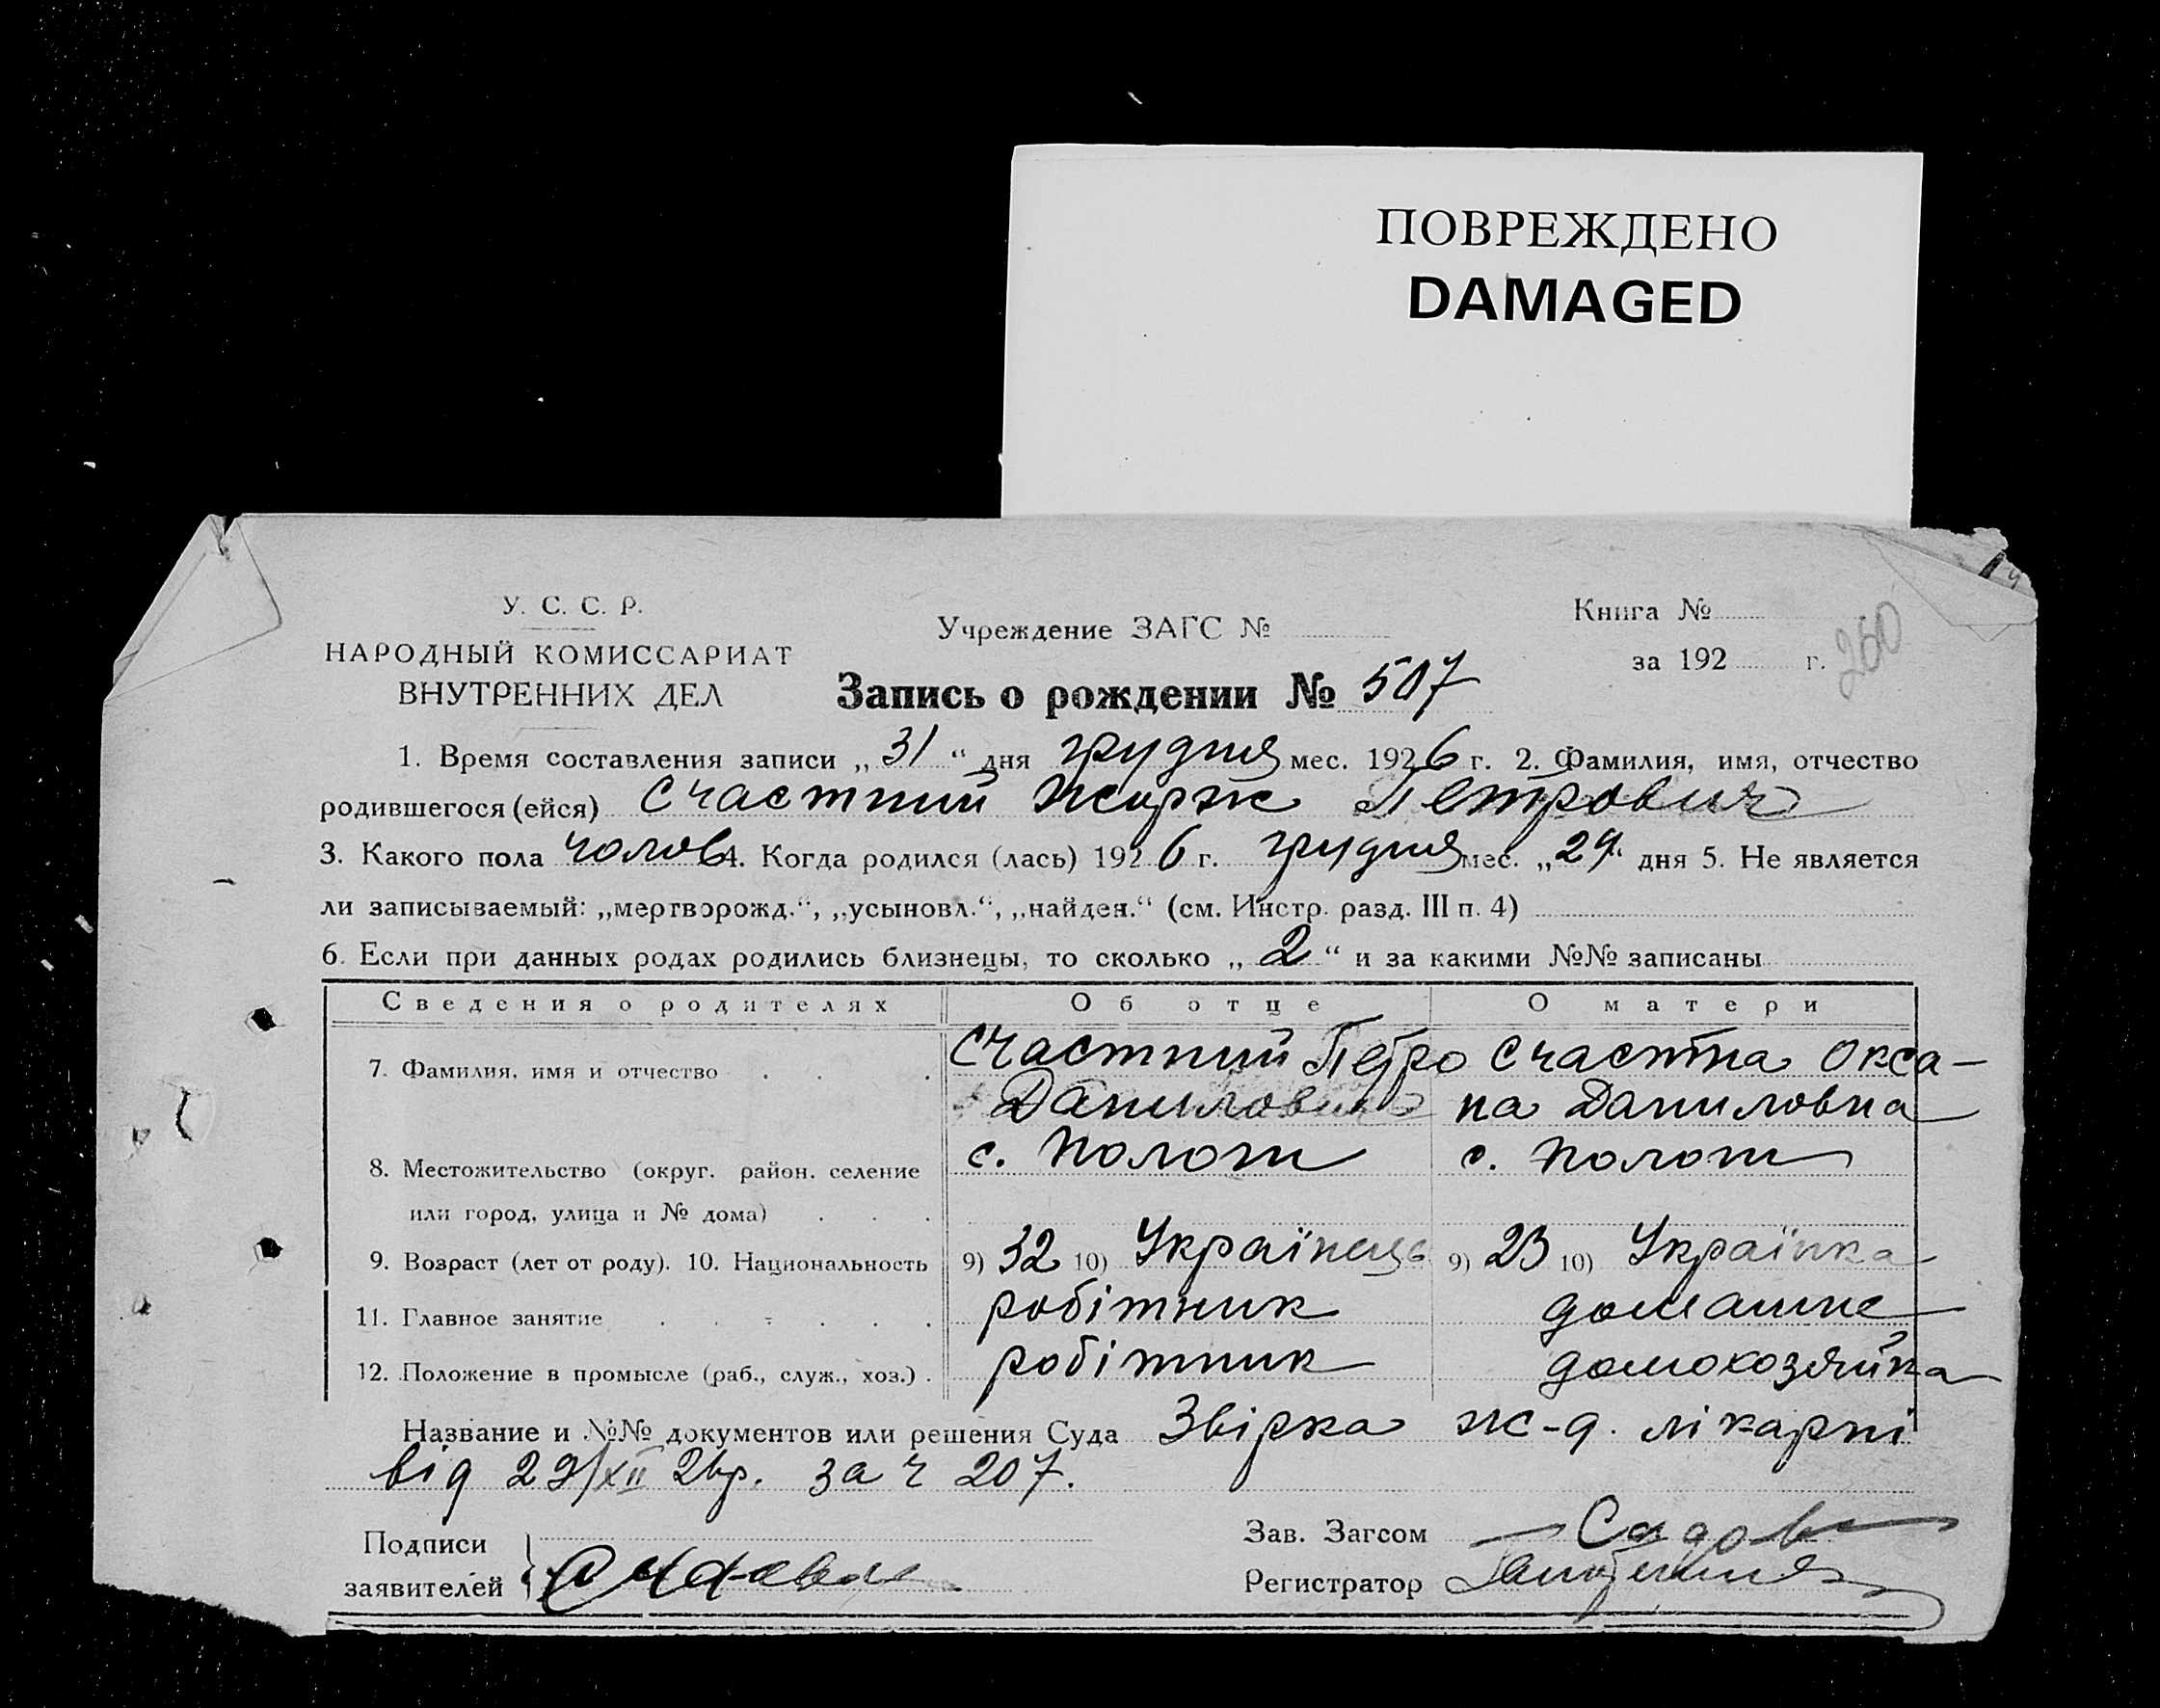 ПОВРЕЖДЕНО
DAMAGED
У. С. С. Р.
НАРОДНЫЙ КОМИССАРИАТ
ВНУТРЕННИХ ДЕЛ
Учреждение ЗАГС №
Книга №
за 192 г.
260
Запись о рождении № 507
1. Время составления записи „31“ дня грудня мес. 1926 г. 2. Фамилия, имя, отчество
родившегося (ейся) Счастний Жорж Петрович
3. Какого пола чолов 4. Когда родился (лась) 1926 г. грудня мес. „29“ дня 5. Не является
ли записываемый: „мертворожд.“, „усыновл.“, „найден.“ (см. Инстр. разд. III п. 4)
6. Если при данных родах родились близнецы, то сколько „2“ и за какими №№ записаны
Сведения о родителях Об отце О матери
7. Фамилия, имя и отчество Счастний Петро Счастна Окса-
Данилович на Даниловна
8. Местожительство (округ. район. селение с. Пологи с. Пологи
или город, улица и № дома)
9. Возраст (лет от роду). 10. Национальность 9) 32 10) Українець 9) 23 10) Українка
11. Главное занятие робітник домашнє
12. Положение в промысле (раб., служ., хоз.) робітник домохозяйка
Название и №№ документов или решения Суда Звірка ж-д. лікарні
від 29/XII 26р. за ч 207.
Подписи
заявителей
Зав. Загсом Садов
Регистратор